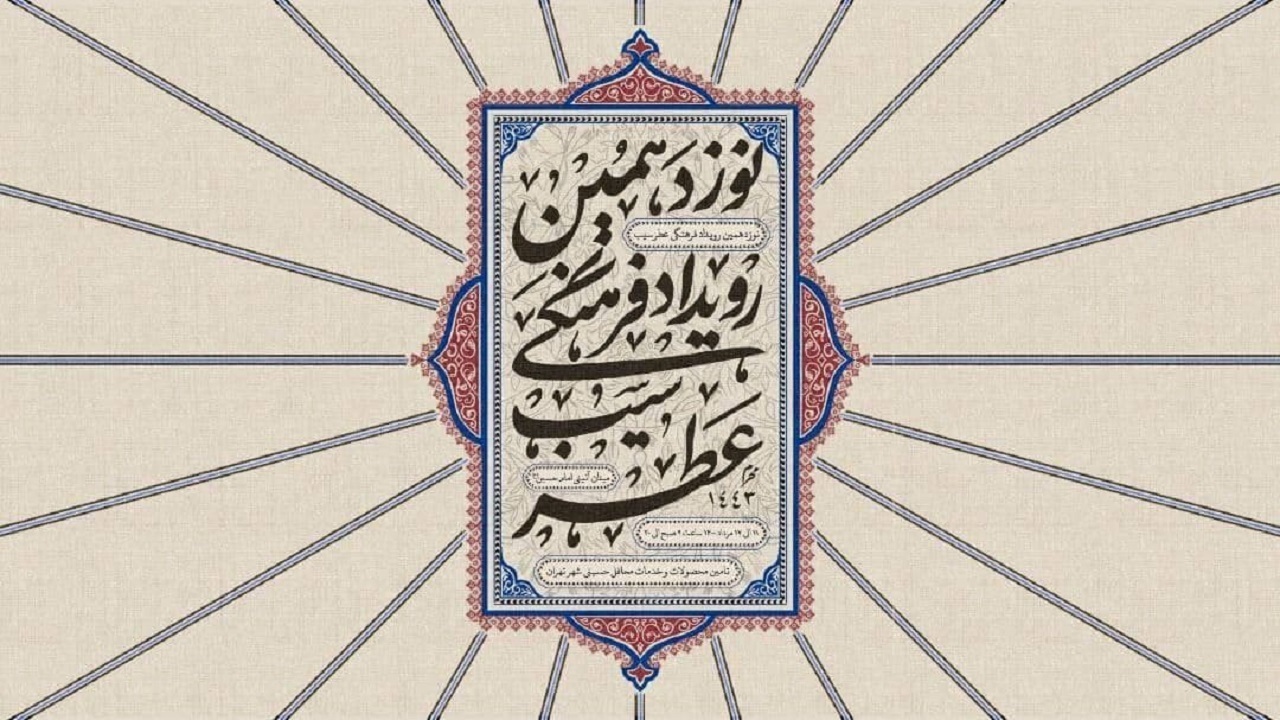 نوزدهمین
نوزدهمین رویداد فرهنگی عطر سیب
رویداد فرهنگی
سیب
عطر
محرم
۱٤٤۳
میدان آئینی امام حسین(ع)
۱۱ الی ۱۷ مرداد ۱۴۰۰ ساعت ۹ صبح الی ۲۰
تامین محصولات و خدمات محافل حسینی شهر تهران